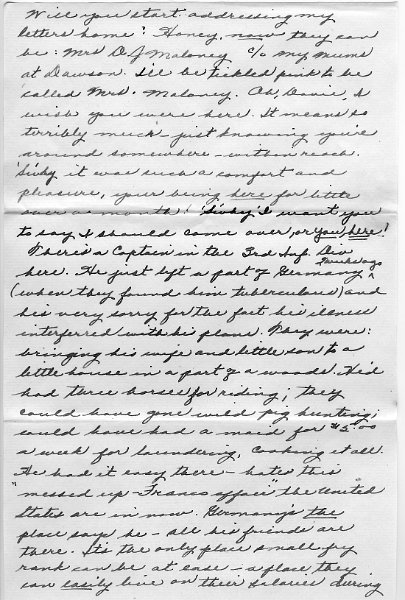 Will you start addressing my
letters home? Honey, now they can
be: Mrs D. J Maloney c/o my mums
at Dawson. I'll be tickled pink to be
called Mrs. Maloney. Oh, Davie, I
wish you were here. It means so
terribly much - just knowing you're
around somewhere - within reach.
it was such a comfort and
pleasure, your being here for little
over a month! I want you
to say I should come over, or you here!
There's a Captain in the 3rd Inf. Div
here. He just left a part of Germany 2 weeks ago
(when they found him tuberculous) and
his very sorry for the fact his illness
interferred with his plans. They were:
bringing his wife and little son to a
little house in a part of a woods. He'd
had three horses for riding; they
could have gone wild pig hunting;
could have had a maid for $5.00
a week for laundering, cooking & all.
He had it easy there - hates this
"messed up - Franco affair" the United
States are in now. Germany's the
place says he - all his friends are
there. It's the only place small fry
rank can be at ease - a place they
can easily live on their salaries during